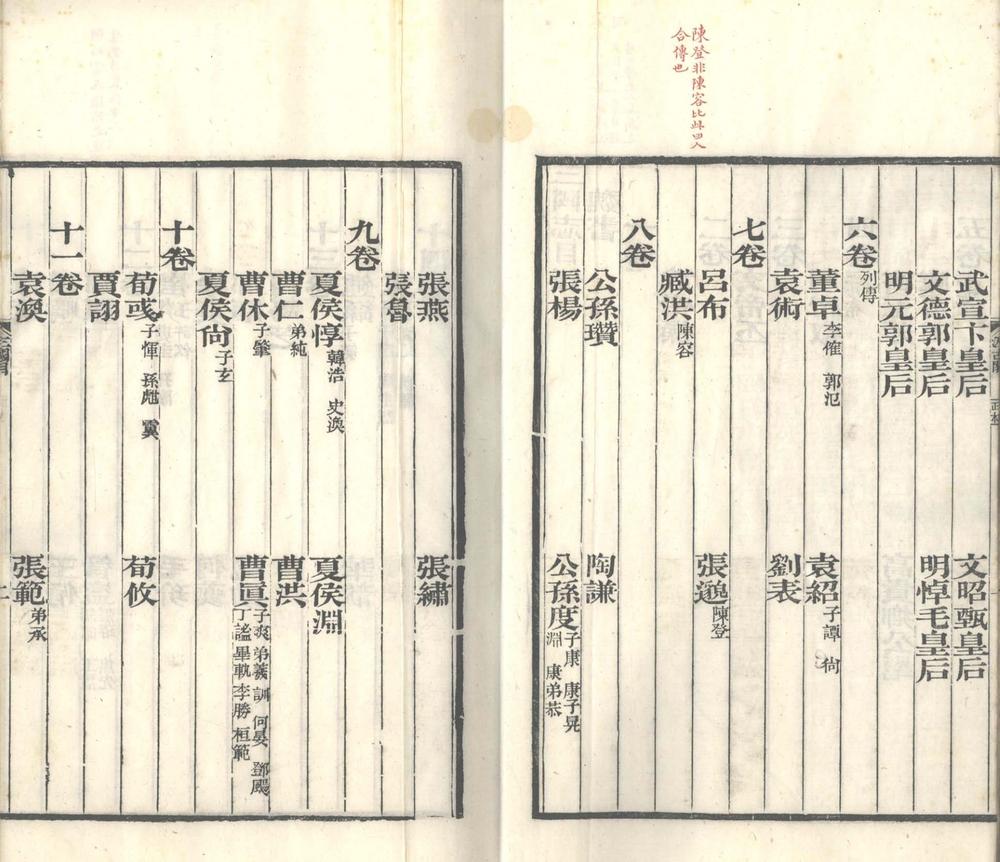 陳登非陳容比此四人
合傳也
武宣卞皇后 文昭甄皇后
文德郭皇后 明悼毛皇后
明元郭皇后
六卷 列傳
董卓 李傕 郭汜 袁紹 子譚 尙
袁術 劉表
七卷
呂布 張邈 陳登
臧洪 陳容
八卷
公孫瓚 陶謙
張楊 公孫度 子康 康子晃 淵 康弟恭
張燕 張繡
張魯
九卷
夏侯惇 韓浩 史渙 夏侯淵
曹仁 弟純 曹洪
曹休 子肇 曹眞 子爽 弟羲 訓 何晏 鄧颺 丁謐 畢軌 李勝 桓範
夏侯尙 子玄
十卷
荀彧 子惲 孫甝 霬 荀攸
賈詡
十一卷
袁渙 張範 弟承